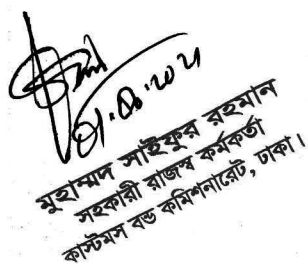 মুহাম্মদ সাইফুর রহমান
সহকারী রাজস্ব কর্মকর্তা
কাস্টমস বন্ড কমিশনারেট, ঢাকা।